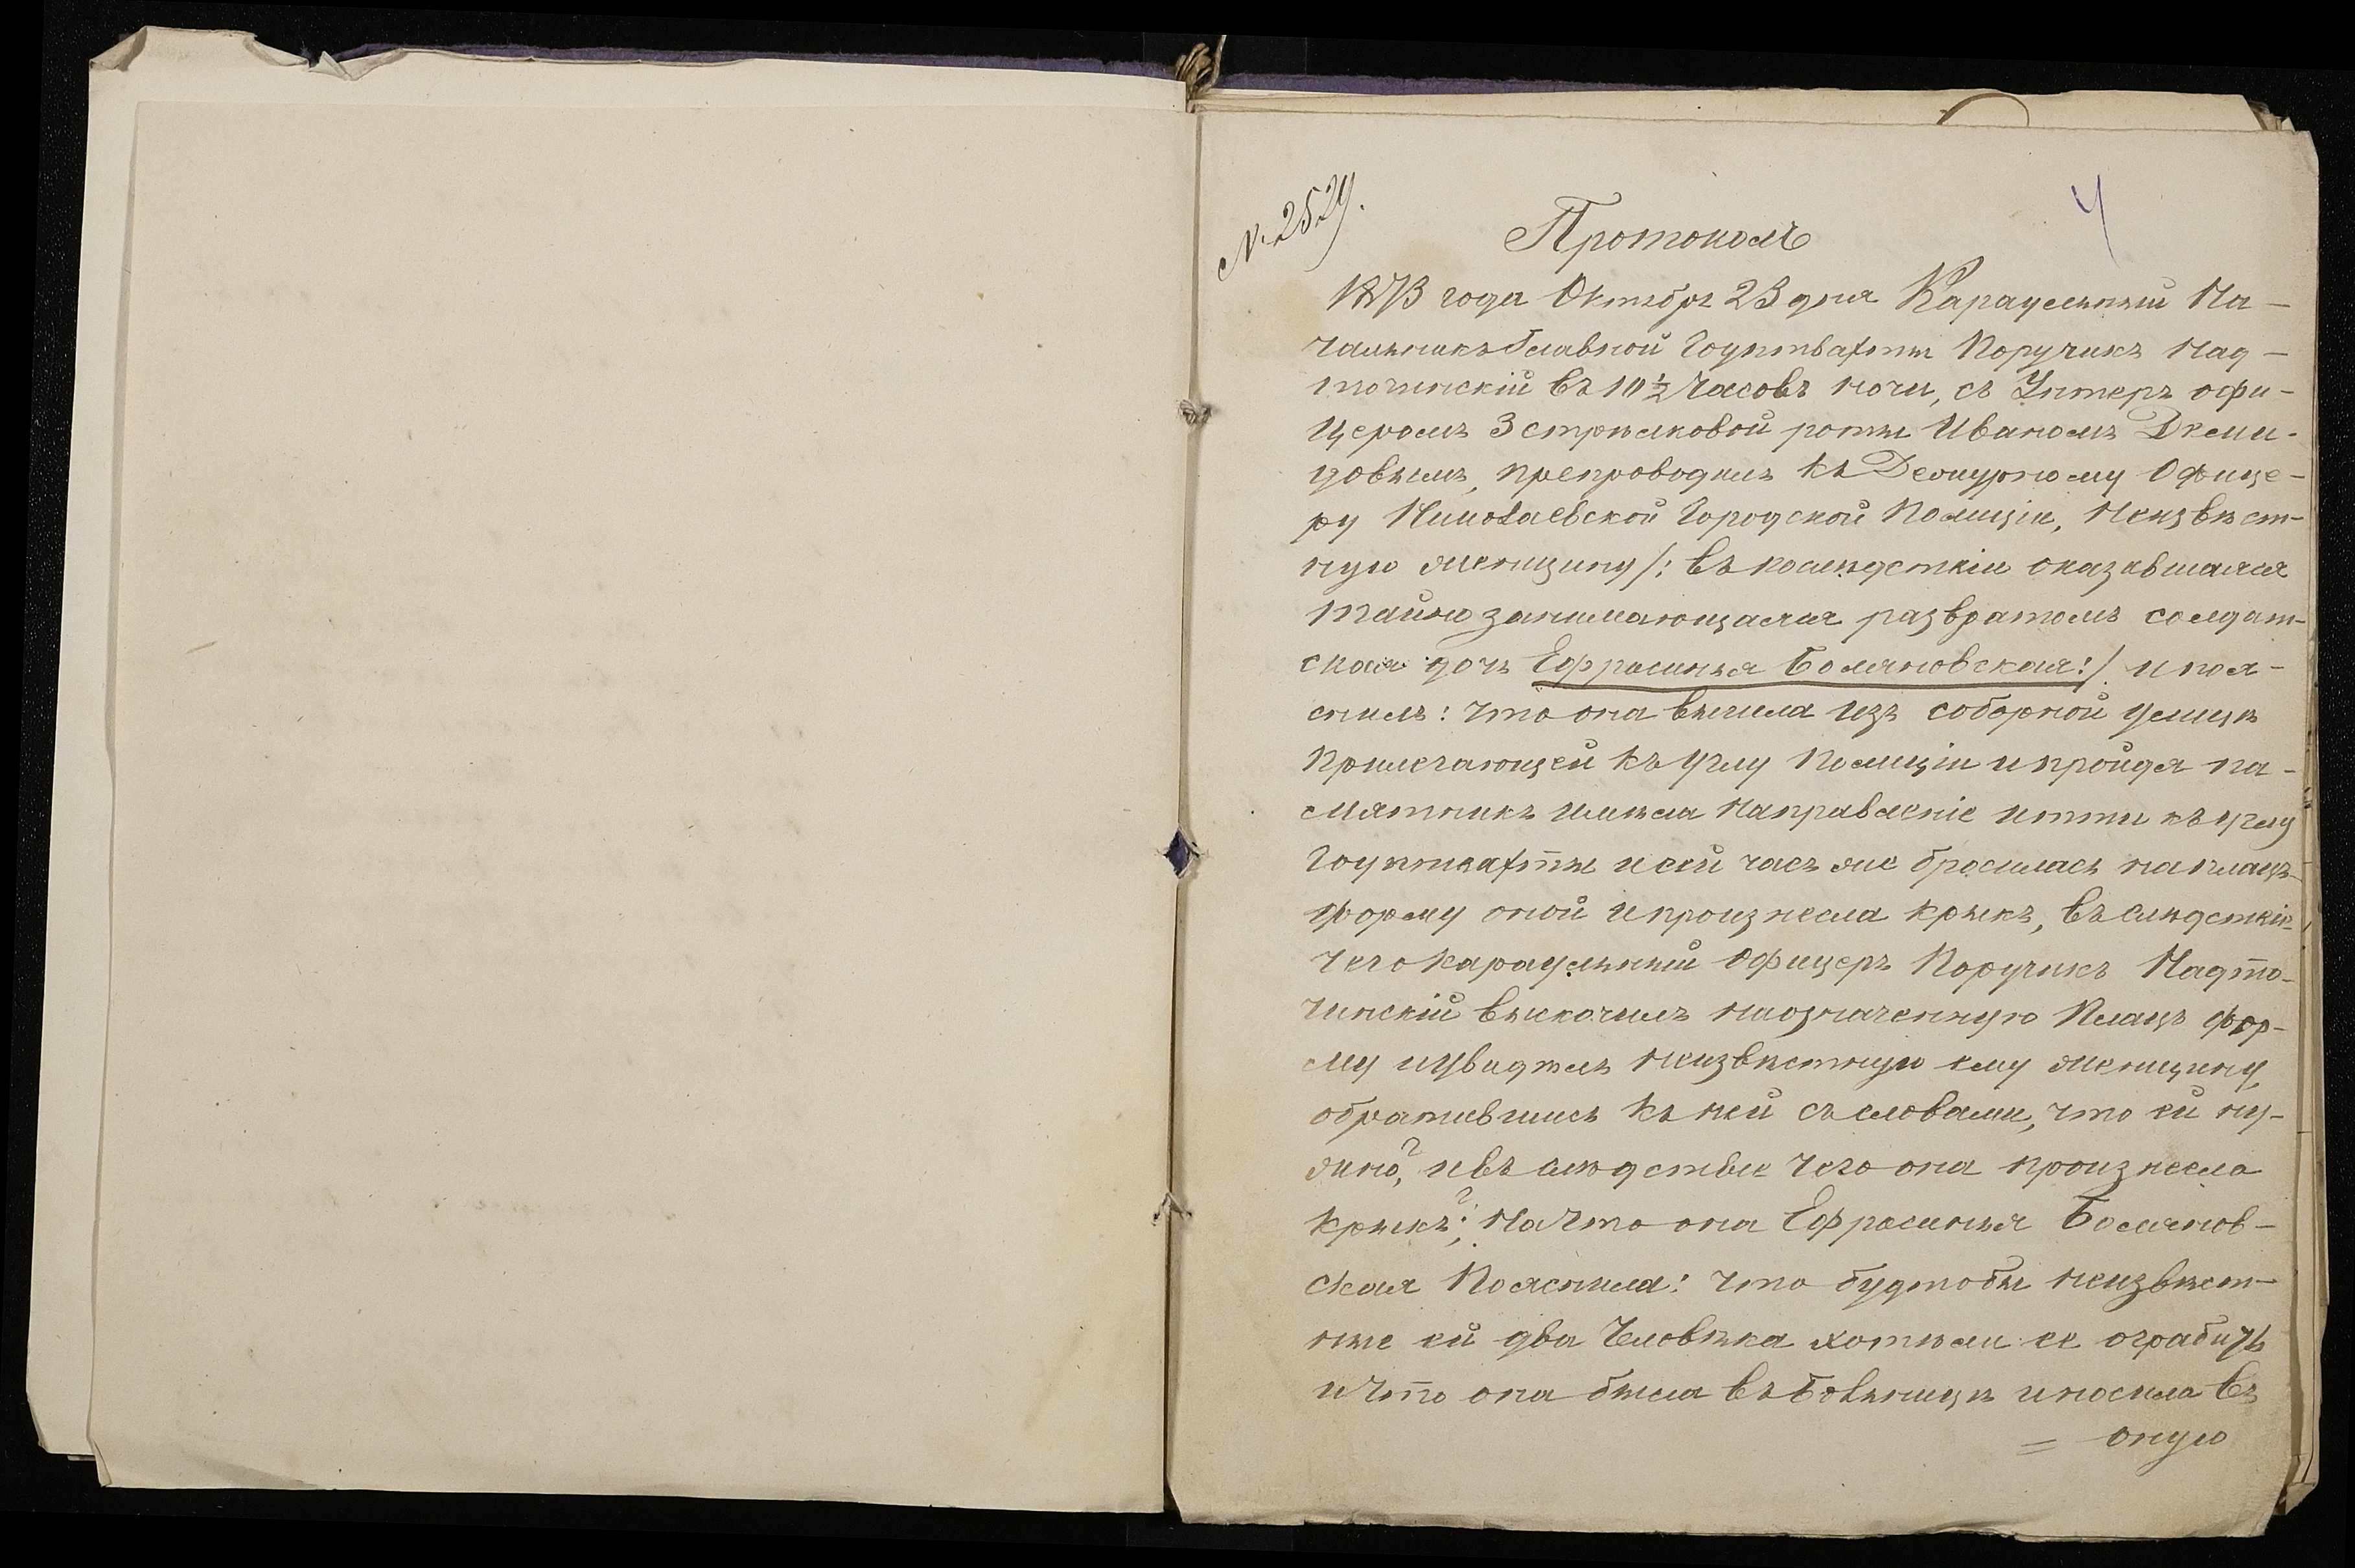 № 2529.
4
Протоколъ
1873 года Октября 23 дня Караульный На-
чальникъ Главной Гоуптвахты Поручикъ Над-
точинскій въ 10 ½ часовъ ночи, съ Унтеръ офи-
церомъ 3 стрѣлковой роты Иваномъ Деми-
довымъ, препроводилъ къ Дежурному Офице-
ру Николаевской Городской Полиціи, Неизвѣст-
ную женщину /: въ послѣдствіи оказавшаяся
тайно занимающаяся развратомъ солдат-
ская дочь Ефросинья Боляновская :/ и поя-
снилъ: что она вышла изъ соборной улицы
Прилегающей къ углу Полиціи и пройдя па-
мятникъ имѣла направленіе итти къ углу
Гоуптвахты и сей часъ же бросилась на плацъ-
форму оной и произнесла крыкъ, въ слѣдствіе
чего Караульный Офицеръ Поручикъ Надто-
чинскій выскочилъ на означенную Плацъ фор-
му и увидѣлъ неизвѣстную ему женщину,
обратившись къ ней съ словами, что ей ну-
жно?, и въ слѣдствіе чего она произнесла
крыкъ?; На что она Ефросинья Боляновская
ская Пояснила: что будтобы неизвѣст-
ные ей два человѣка хотѣли ее ограбить
и что она была въ Больницѣ и носила въ
= оную